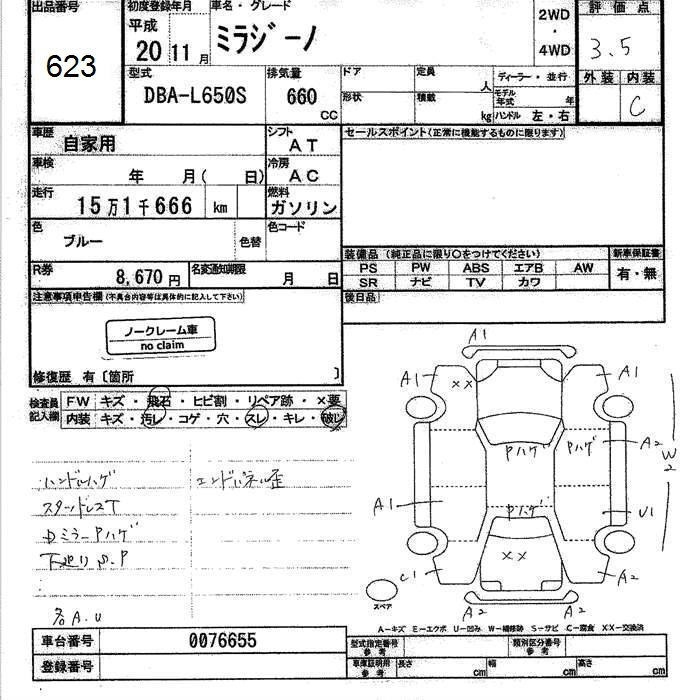 出品番号 初度登録年月 車名・グレード 2WD ・ 4WD 評価点
623 平成 20 11月 ミラジーノ 3.5
型式 排気量 ドア 定員 人 ディーラー・並行 外装 内装
DBA-L650S 660 CC 形状 積載 kg モデル年式 年 ハンドル 左・右 C
車歴 自家用 シフト AT セールスポイント(正常に機能するものに限ります)
車検 年 月( 日) 冷房 AC
走行 15万1千666 km 燃料 ガソリン
色 ブルー 色替 色コード
装備品 (純正品に限り〇をつけてください) 新車保証書
R券 8,670円 名変通知期限 月 日
PS PW ABS エアB AW 有・無
SR ナビ TV カワ
注意事項申告欄 (不具合内容等は具体的に記入して下さい) 後日品
ノークレーム車
no claim
修復歴 有〔箇所 〕
検査員記入欄 FW キズ・飛石・ヒビ割・リペア跡・×要
内装 キズ・汚レ・コゲ・穴・スレ・キレ・破レ
ハンドルハゲ エンドパネル歪
スタッドレスT
DミラーPハゲ
下廻りS.P
各A.U
A1
A1 XX A1
A2
W2
Pハゲ Pハゲ
A1 Pハゲ U1
XX
C1 A2
スペア A2 A2
A-キズ E-エクボ U-凹み W-補修跡 S-サビ C-腐食 XX-交換済
車台番号 0076655 型式指定番号 参考 類別区分番号 参考
登録番号 車庫証明用 参考 長さ cm 幅 cm 高さ cm